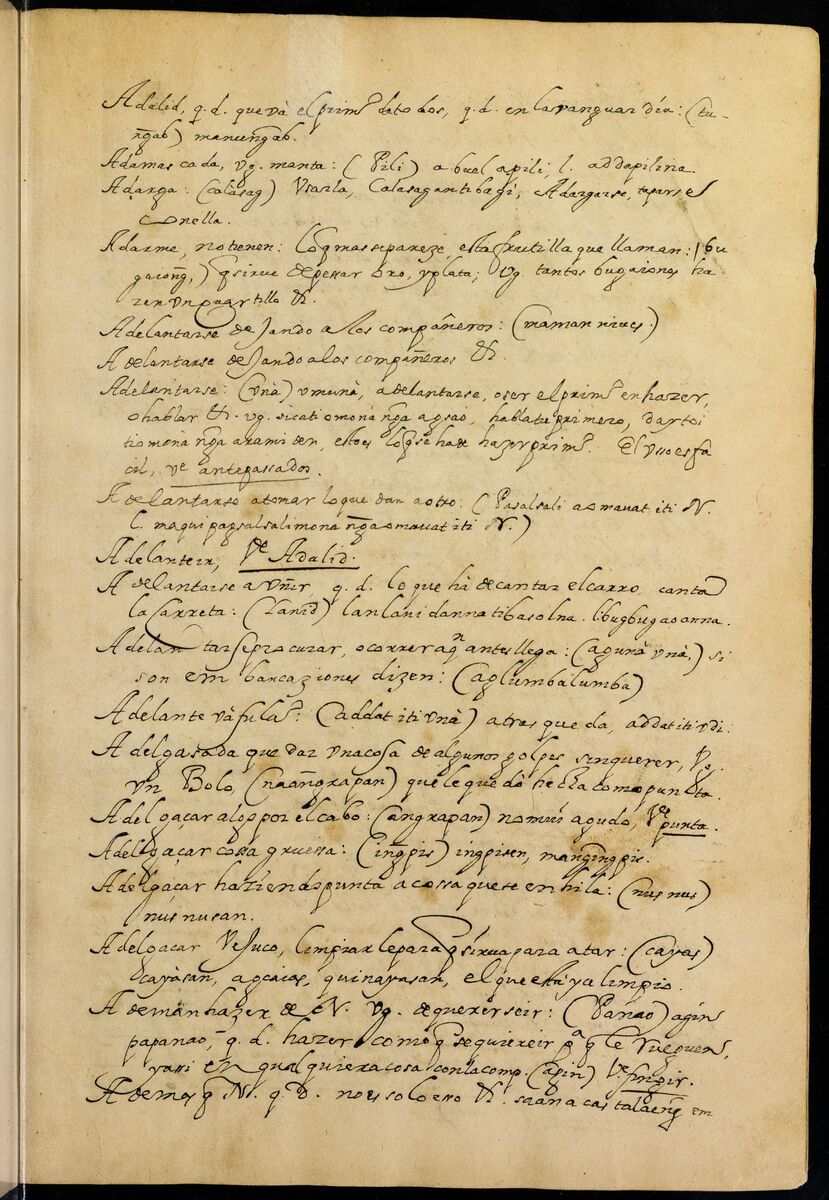 Adalid, q. d. que và el prim.º de todos, q. d. en la vanguardia: (tu-
n̄gab) manun̄gab.
Adamascada, vg. manta: (Pili) abuel apili, l. addapilina.
Adarga: (Calasag) Vsarla, Calasagantibagi, Adargarse, taparse
conella.
Adarme, no tienen: lo q̃ mas se pareze, esta frutilla que llaman: (bu
gaion̄g,) q̃ sirue de pessar oro, y plata; vg. tantos bugaiones ha
zen vn quartillo &.
Adelantarse dejando a los compan̄eros: (maman)
Adelantarse dejando a los compan̄eros &.
Adelantarse: (vnà) vmunà, adelantarse, o ser el prim.º en hazer,
o hablar &. vg. sicati omonà n̄ga agsao, hablate primero, dartoi
ti omonà n̄ga aramiden, esto es lo q̃ se ha de hazer prim.º. El vsso es fa
cil, v.e antepassados.
Adelantarse a tomar lo que dan a otro: (Pasalsali aomauat iti N.
l. maqui pagsalsali monà n̄ga omauat iti N.)
Adelante ir, V.e Adalid.
Adelantarse a vñir, q. d. lo que hà de cantar el carro, canta
la carreta: (Lanid) lanlanidanna ti basolna. bugbugaoanna.
Adelantarse pra curar, o correr a q.n antes llega: (agunà vnà,) si
son em barcaziones dizen: (aglumbalumba)
Adelante và fula.º: (addat iti vnà) atras queda, addat iti vdi.
Adelgasada quedar vna cosa de algunos golpes sin querer, Vg.
vn Bolo, (naan̄grapan) que le quedò hecha como punta.
Adelgaçar algo por el cabo: (an̄grapan) no mui agudo, V.e punta.
Adelgaçar cossa gruessa: (in̄gpis) ingpisen, man̄gin̄gpis.
Adelgaçar haziendo punta a cossa que se enhila: (nus nus)
nus nusan.
Adelgaçar Vejuco, limpiarle para q̃ sirua para atar: (cayas)
cayàsan, agcaias, quinayasan, el que està ya limpio.
Ademan hazer de N. vg. de querer reir: (Panào) agin
papanao, q. d. hazer como q̃ se quiere ir p.a q̃ le rueguen,
y assi en qualquiera cosa con la comp. (agin) V.e fingir.
Ademas q̃ N. q. d. no es solo esso &. saan a cas talaen̄g em